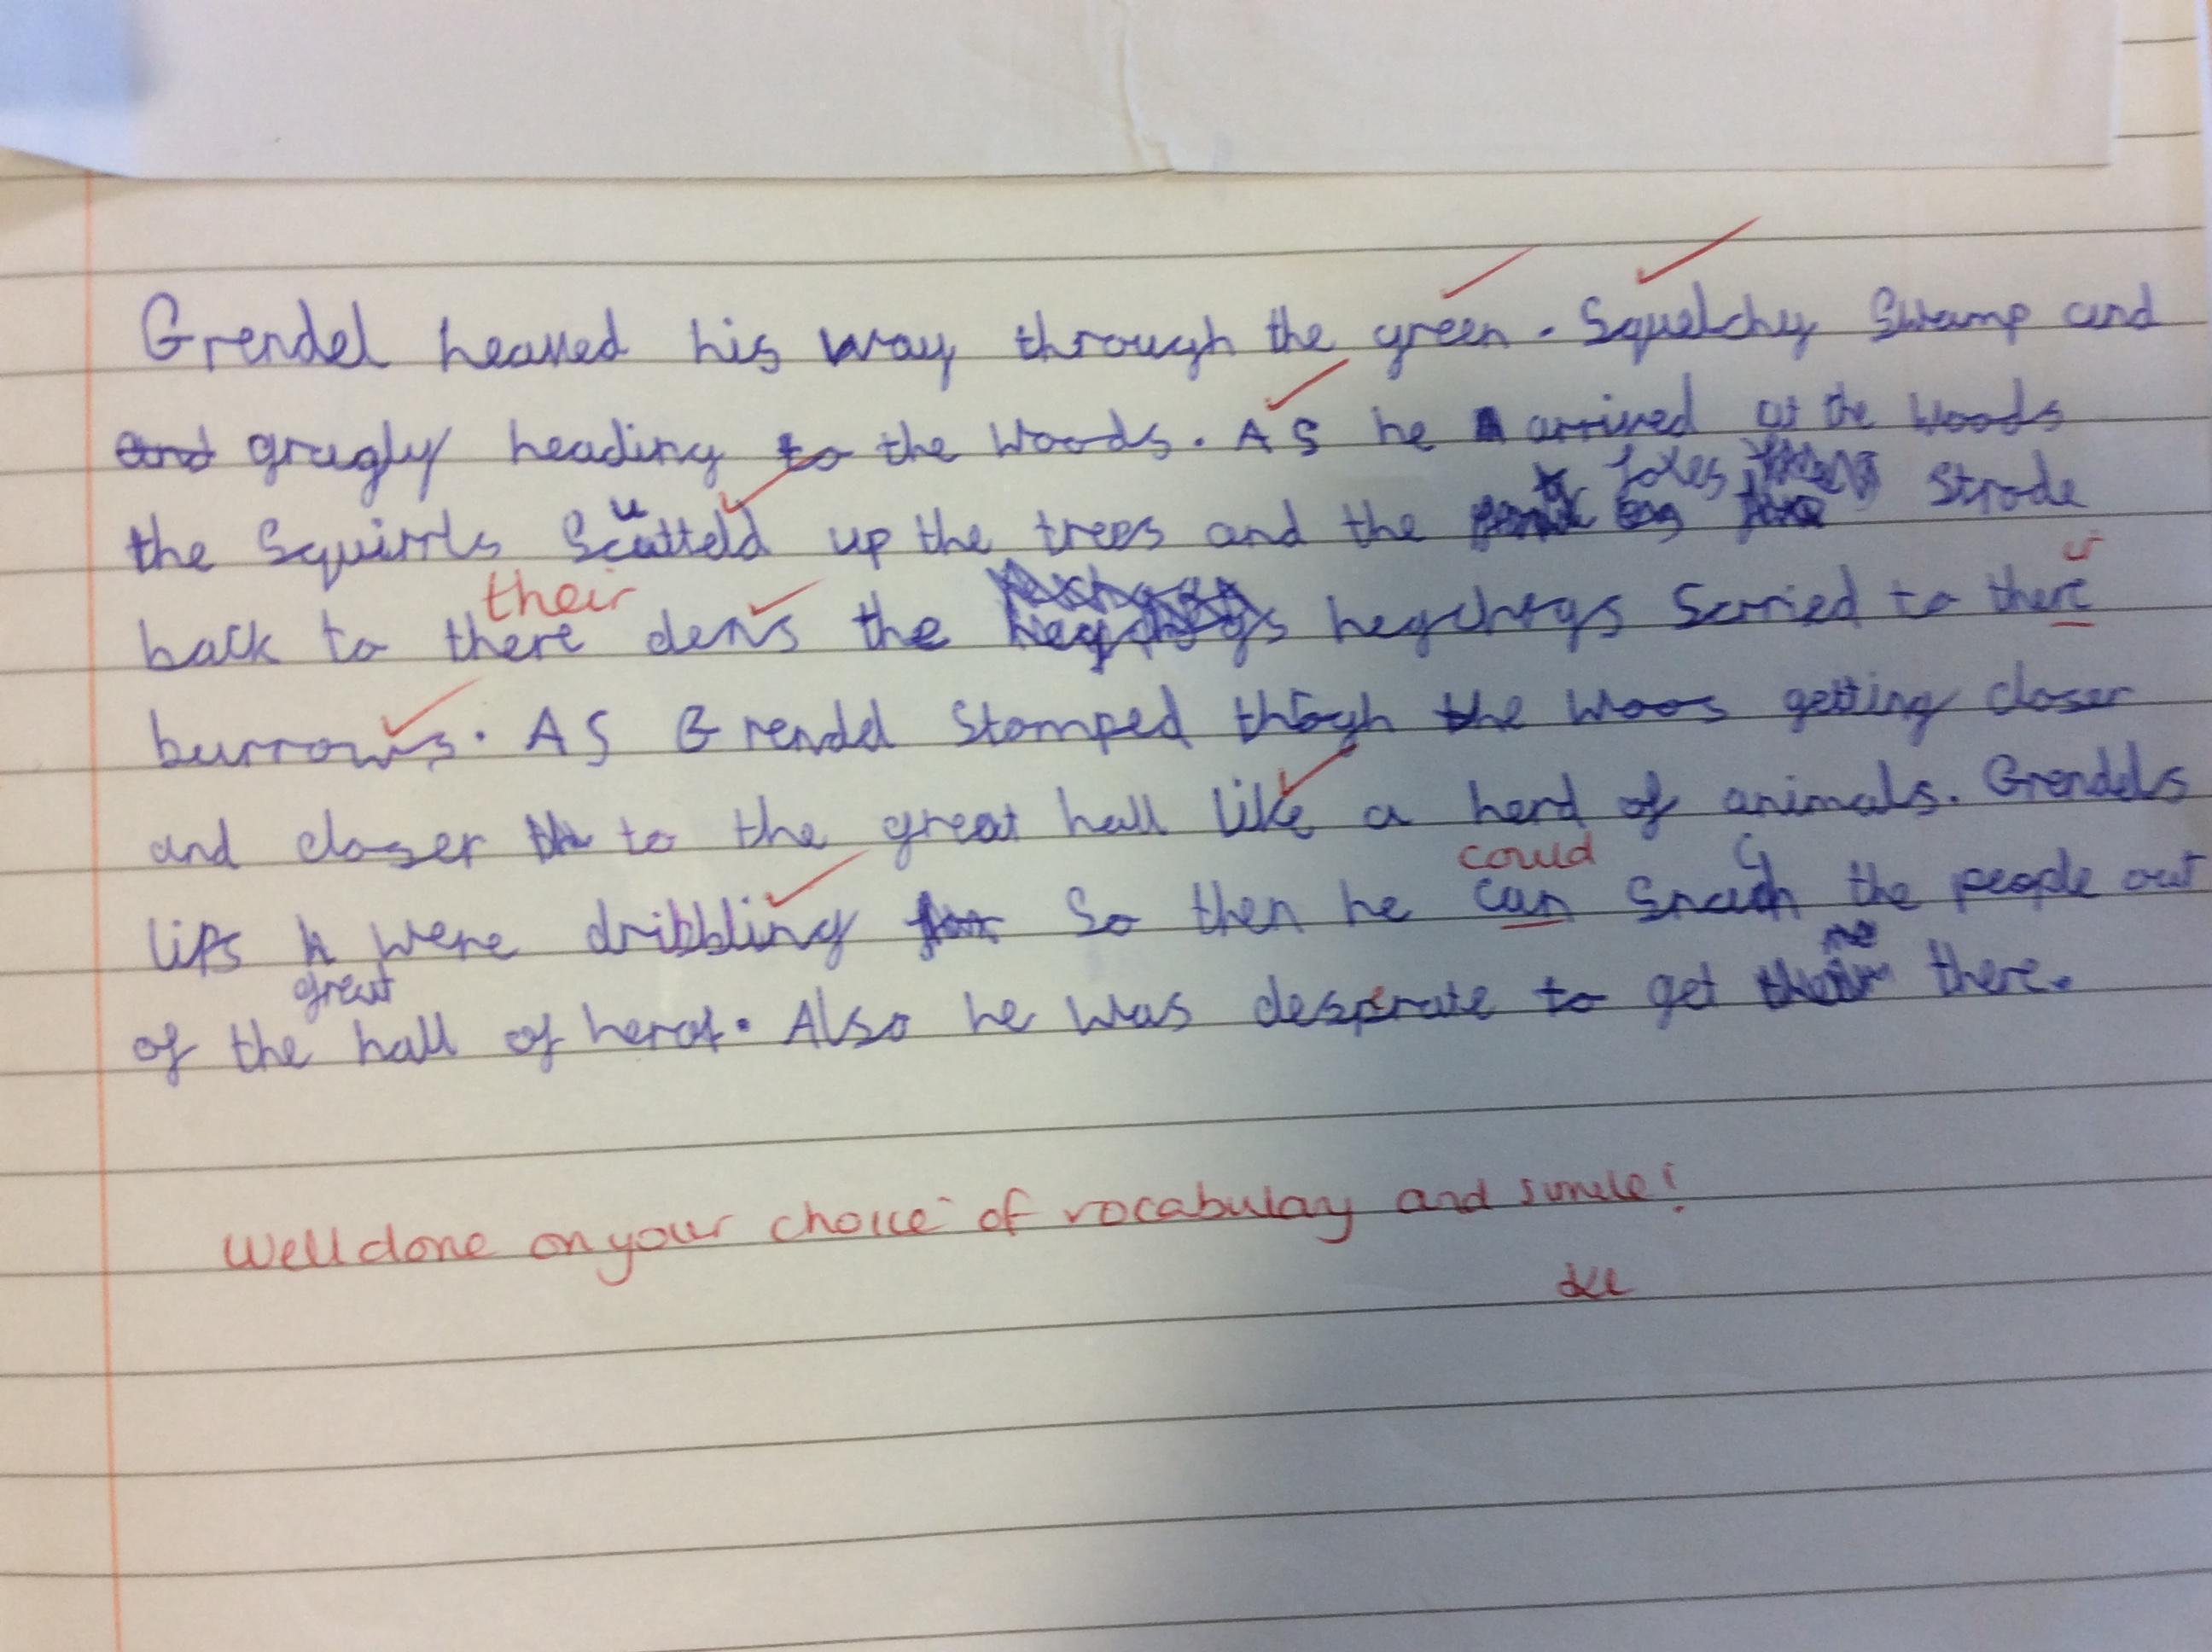 Grendel heaved his way through the green. Squelchy Swamp and
and grugly heading to the Woods. As he arrived at the Woods
the Squirrls Scutteld up the trees and the foxes Strode
their
back to there dens the hegehogs Scurried to there
burrows. As Grendel Stomped though the Woos getting closer
and closer to the great hall like a herd of animals. Grendels
could
lips were dribbling So then he can Snach the people out
great
of the hall of herot. Also he was desperate to get there.
Well done on your choice of vocabulay and simile!